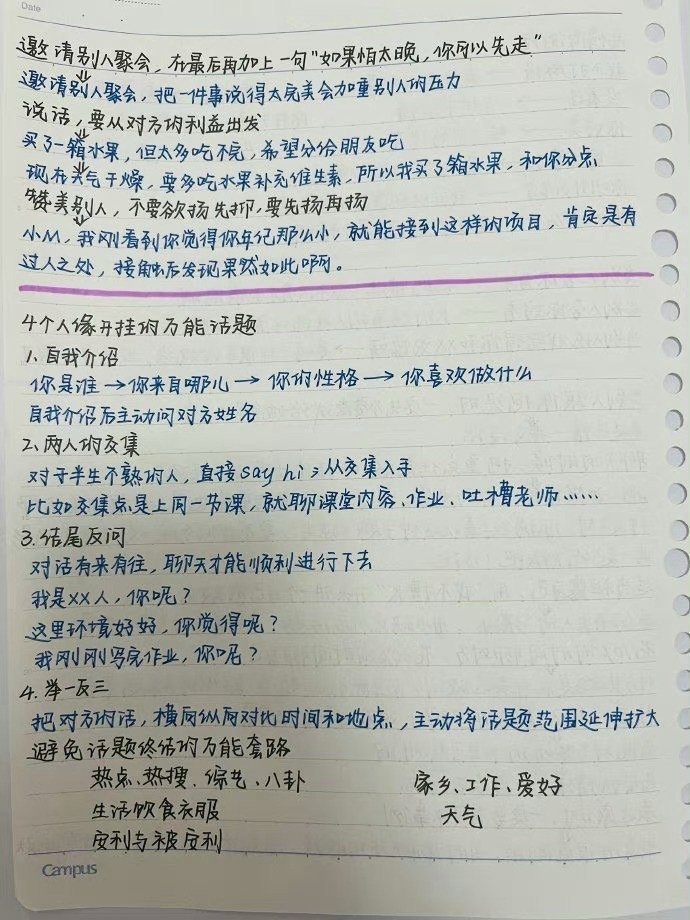 Date
邀请别人聚会，在最后再加上一句"如果怕太晚，你可以先走"
邀请别人聚会，把一件事说得太完美会加重别人的压力
说话，要从对方的利益出发
买了一箱水果，但太多吃不完，希望分给朋友吃
现在天气干燥，要多吃水果补充维生素，所以我买了箱水果，和你分点
赞美别人，不要欲扬先抑，要先扬再扬
小M，我刚看到你觉得你年纪那么小，就能接到这样的项目，肯定是有
过人之处，接触后发现果然如此啊。
4个人缘开挂的万能话题
1、自我介绍
你是谁→你来自哪儿→你的性格→你喜欢做什么
自我介绍后主动问对方姓名
2、两人的交集
对于半生不熟的人，直接say hi；从交集入手
比如交集点是上同一节课，就聊课堂内容、作业、吐槽老师……
3.结尾反问
对话有来有往，聊天才能顺利进行下去
我是XX人，你呢？
这里环境好好，你觉得呢？
我刚刚写完作业，你呢？
4.举一反三
把对方的话，横向纵向对比时间和地点，主动将话题范围延伸扩大
避免话题终结的万能套路
热点、热搜、综艺、八卦 家乡、工作、爱好
生活饮食衣服 天气
安利与被安利
Campus